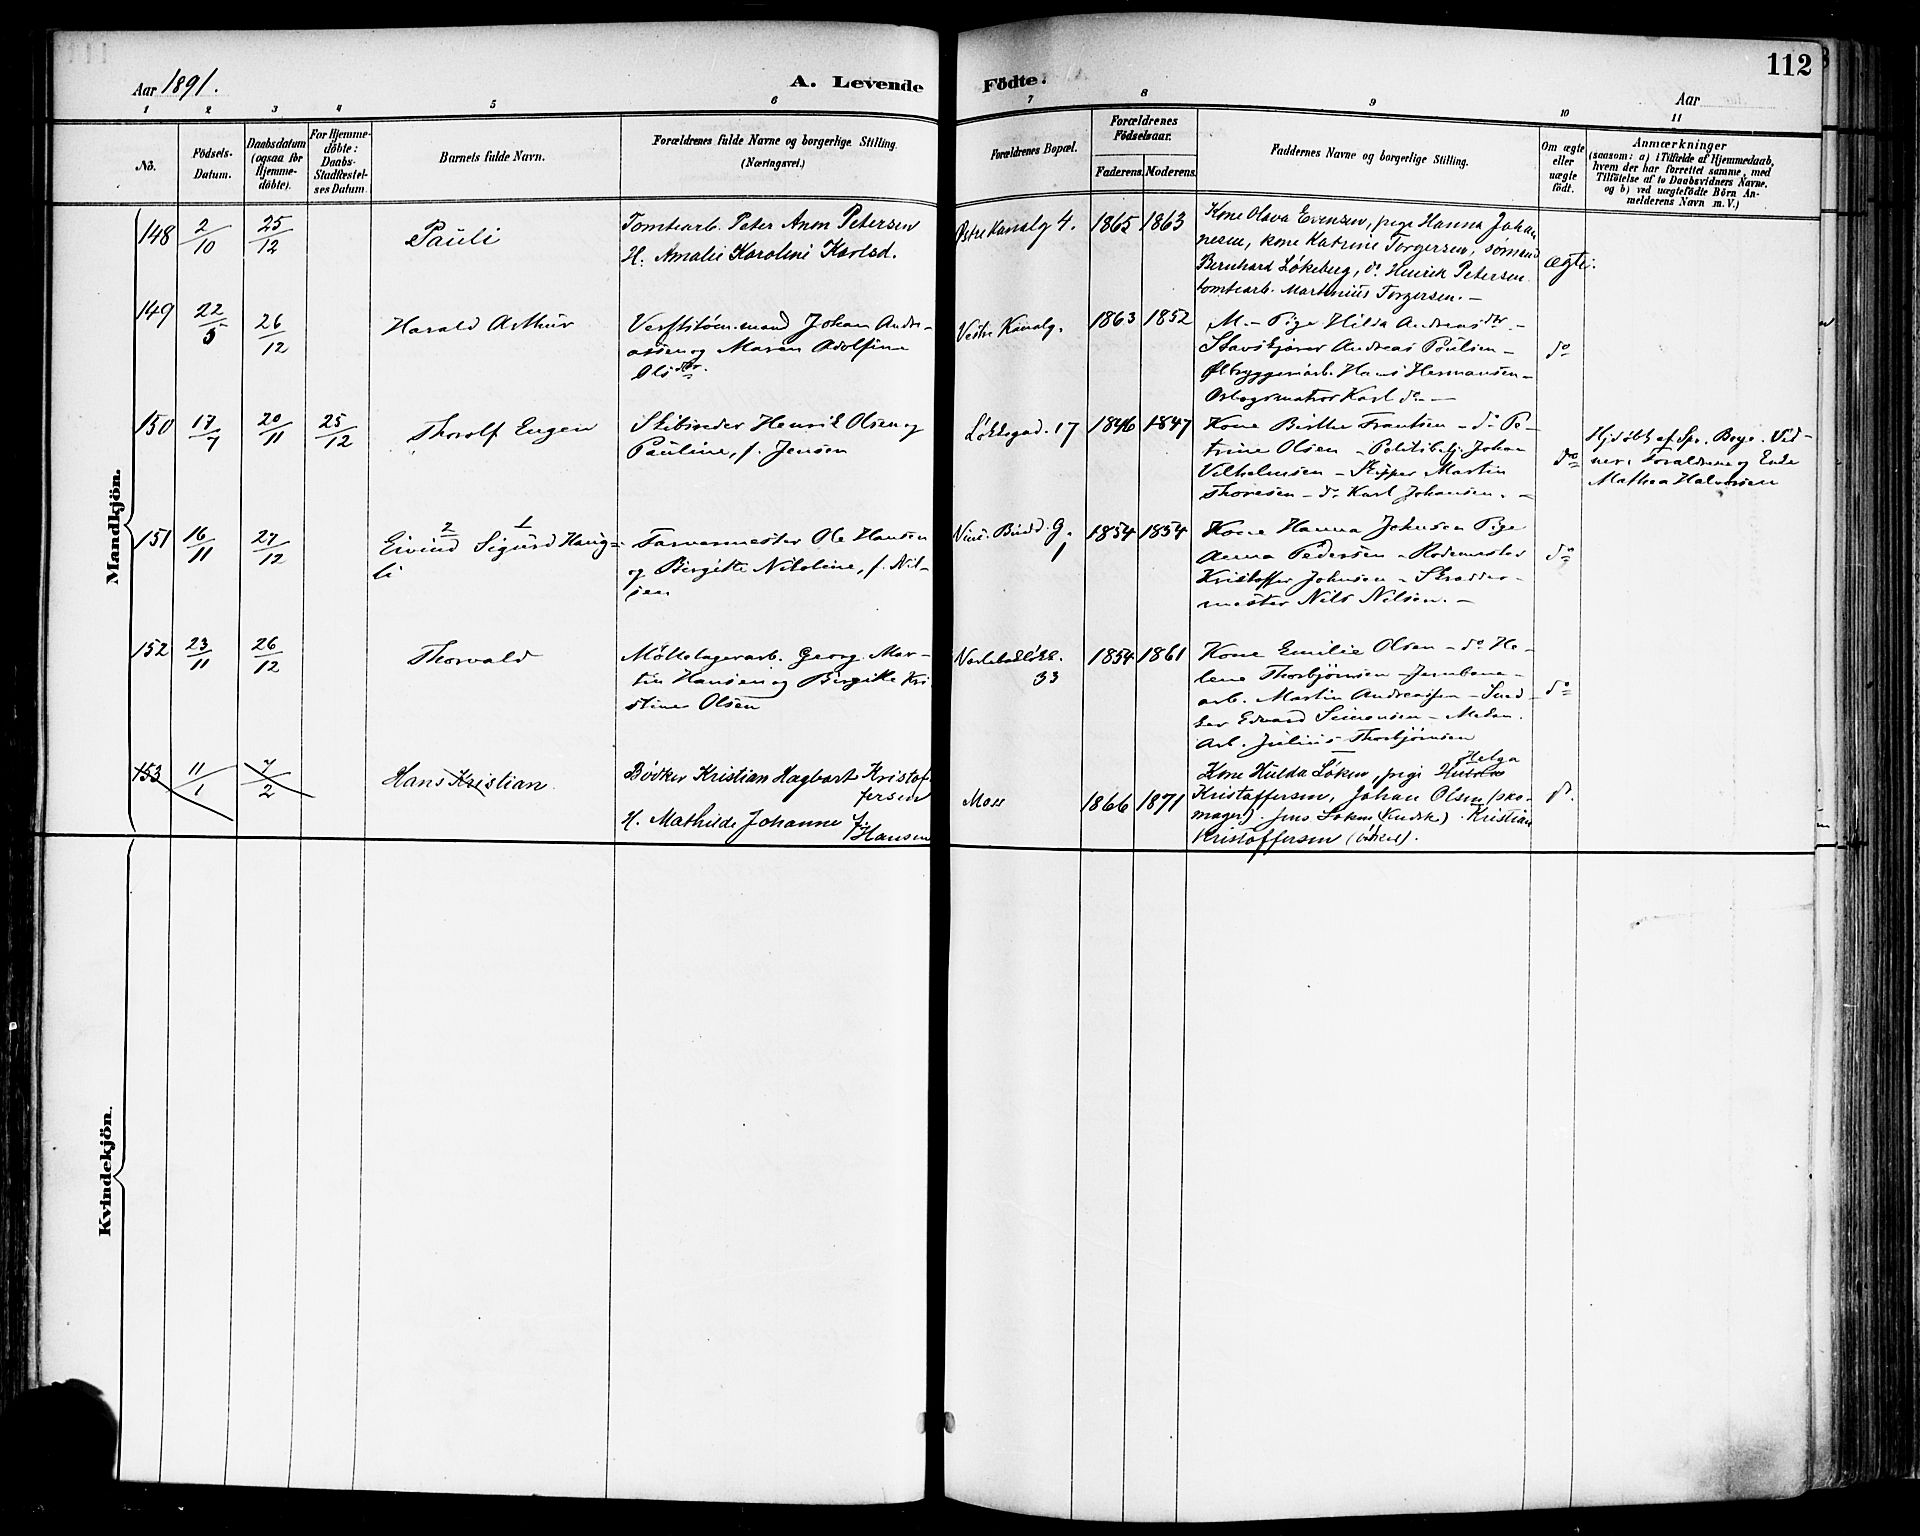 112
Aar 1891.
A. Levende Födte.
Aar
1 2 3 4 5 6 7 8 9 10 11
No.
Födsels-Datum.
Daabsdatum (ogsaa for Hjemme-döbte).
For Hjemme-döbte: Daabs-Stadfæstel-ses Datum.
Barnets fulde Navn.
Forældrenes fulde Navne og borgerlige Stilling.
(Næringsvei.)
Forældrenes Bopæl.
Forældrenes Födselsaar.
Faderens. Moderens.
Faddernes Navne og borgerlige Stilling.
Om ægte eller uægte födt.
Anmærkninger
(saasom: a) i Tilfælde af Hjemmedaab,
hvem der har forrettet samme, med
Tilföielse af to Daabsvidners Navne,
og b) ved uægtefödte Börn An-
melderens Navn m. V.)
Mandkjön.
148 2/10 25/12 Pauli
Tomtearb. Peter Anon Petersen
H. Amalie Karoline Karlsd.
Østre Kanalg 4. 1865 1863
Kone Olava Evensen, pige Hanna Johan
nesen, kone Katrine Torgersen, sømand
Bernhard Løkeberg, do Henrik Petersen
tomtearb. Martinius Torgersen. –
ægte.
149 22/5 26/12 Harald Arthur
Verftstøm.mand Johan Andre-
assen og Maren Adolfine
Olsdtr.
Vestre Kanalg. 1863 1852
M. – Pige Hilda Andreasdtr. –
Andreas Poulsen –
Ølbryggeriarb. Hans Hermansen –
Karl do –
do
150 17/7 20/11 25/12 Thorolf Eugen
Skibsreder Henrik Olsen og
Pauline, f. Jensen
Løkkegad. 17 1846 1847
Kone Birthe Frantsen – do Pe-
trine Olsen – Politibetj. Johan
Vilhelmsen – Skipper Martin
Thoresen – do Karl Johansen. –
do
Hjdøbt af Spr. Boye. Vid-
ner: Forældrene og Enke
Mathea Halvorsen
151 16/11 27/12
2 1
Eivind Sigurd Haug-
li
Farvermester Ole Hansen
og Birgitte Nikoline, f. Nil-
sen
G. 1 1854 1854
Kone Hanna Johnsen Pige
Anna Pedersen – Rodemester
Kristoffer Johnsen – Skrædder-
mester Nils Nilsen. –
do
152 23/11 26/12 Thorvald
Møllelagerarb. Georg Mar-
tin Hansen og Birgitte Kri-
stine Olsen
33 1854 1861
Kone Emilie Olsen – do He-
lene Thorbjørnsen – Jernbane-
arb. Martin Andreassen – Sned-
ker Edvard Simonsen – Mekan.
Arb. Julius Thorbjørnsen
do
153 11/1 7/2 Hans Kristian
Bødker Kristian Hagbart Kristof
fersen
H. Mathilde Johanne f. Hansen
Moss 1866 1871
Helga
Kone Hulda Løken, pige
Kristoffersen, Johan Olsen (sko-
mager). Jens Løken (Kudsk). Kristian
Kristoffersen (bødker).
do.
Kvindekjön.